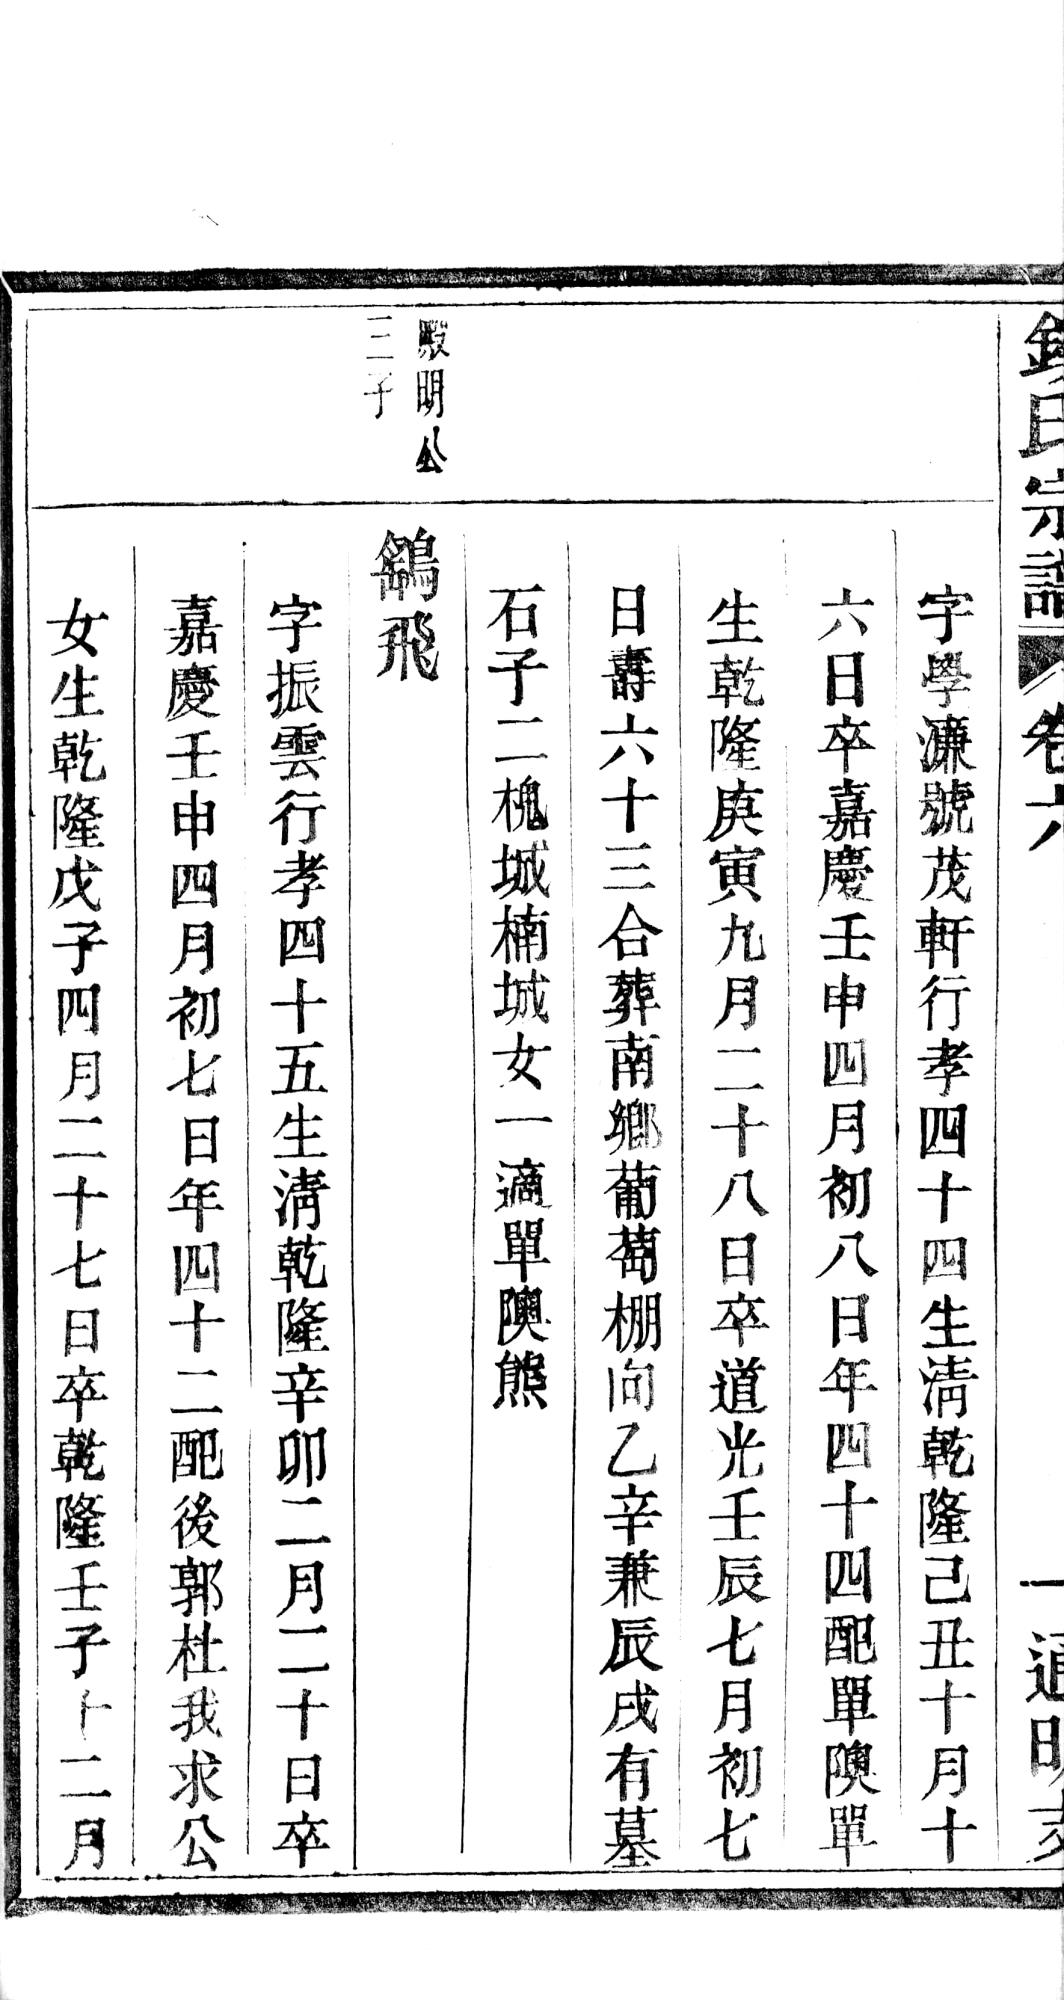 氏宗譜 卷六 一 通明支
字學濂號茂軒行孝四十四生淸乾隆己丑十月十
六日卒嘉慶壬申四月初八日年四十四配單隩單
生乾隆庚寅九月二十八日卒道光壬辰七月初七
日壽六十三合葬南鄉葡萄棚向乙辛兼辰戌有墓
石子二槐城楠城女一適單隩熊
殿明公
三子
鵠飛
字振雲行孝四十五生淸乾隆辛卯二月二十日卒
嘉慶壬申四月初七日年四十二配後郭杜我求公
女生乾隆戊子四月二十七日卒乾隆壬子十二月